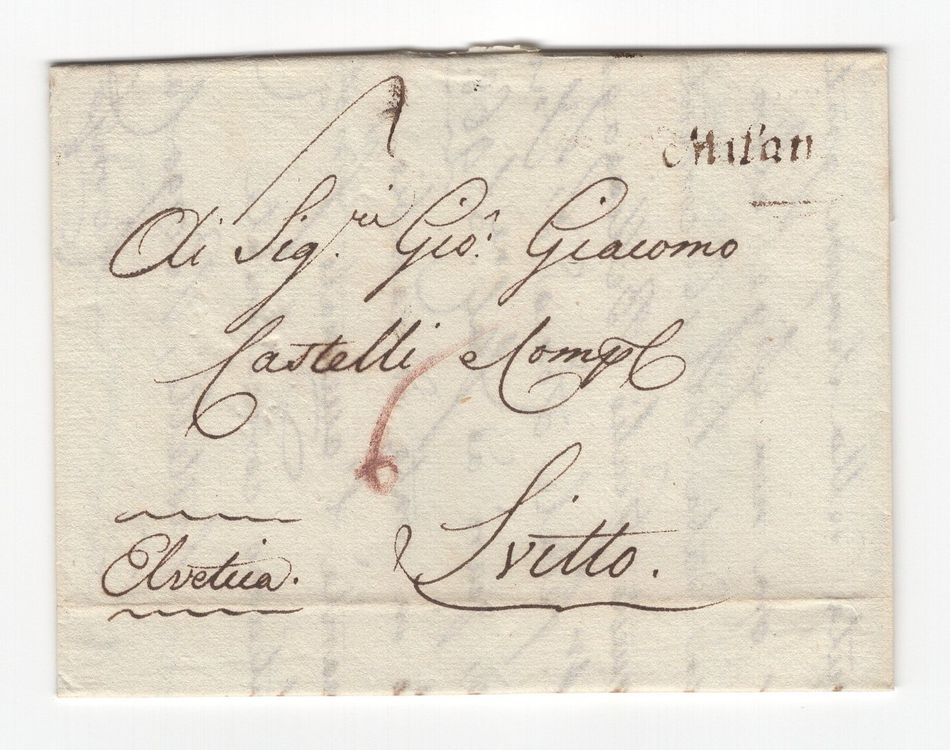 Milan
Ai Sig.ri Gio. Giacomo
Castelli e Comp
Svitto.
Elvetica.
6